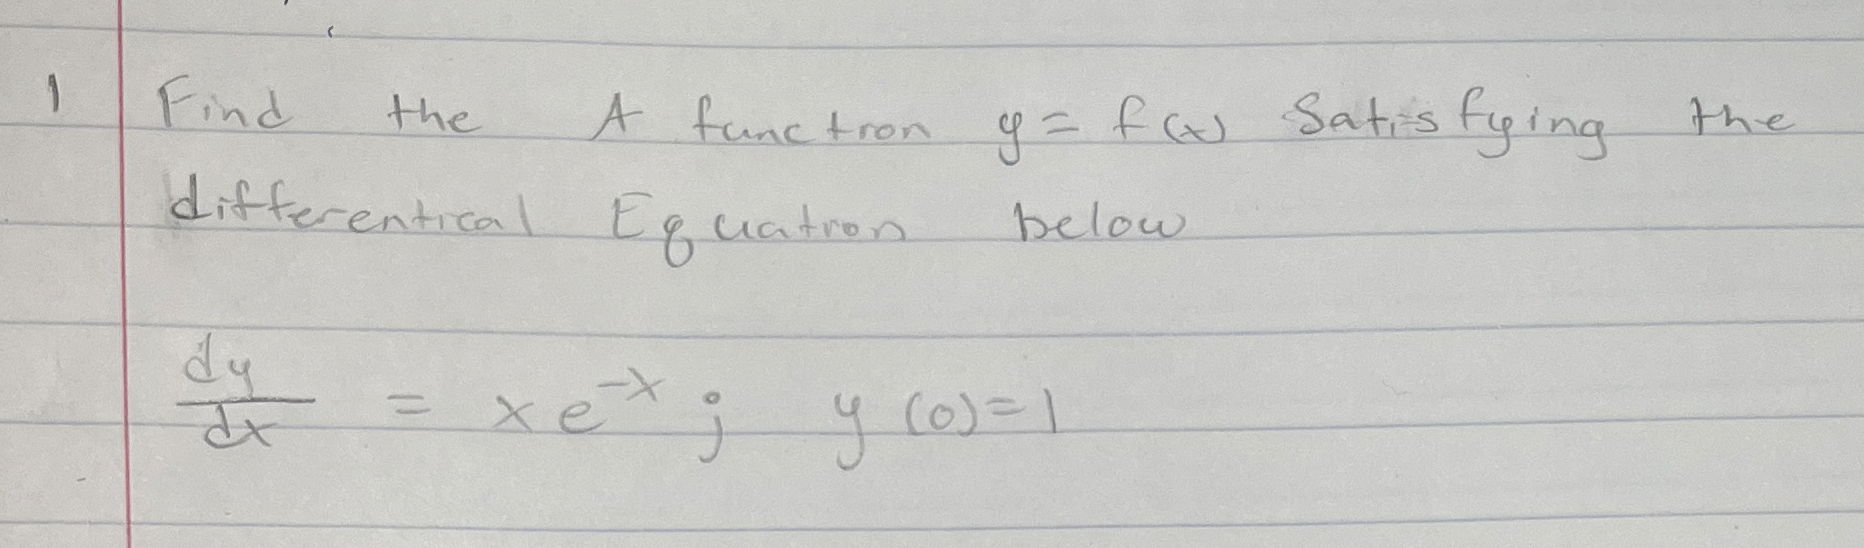 1 Find the A function y = f(x) Satisfying the
differentical Equation below
dy/dx = xe^-x ; y(0)=1